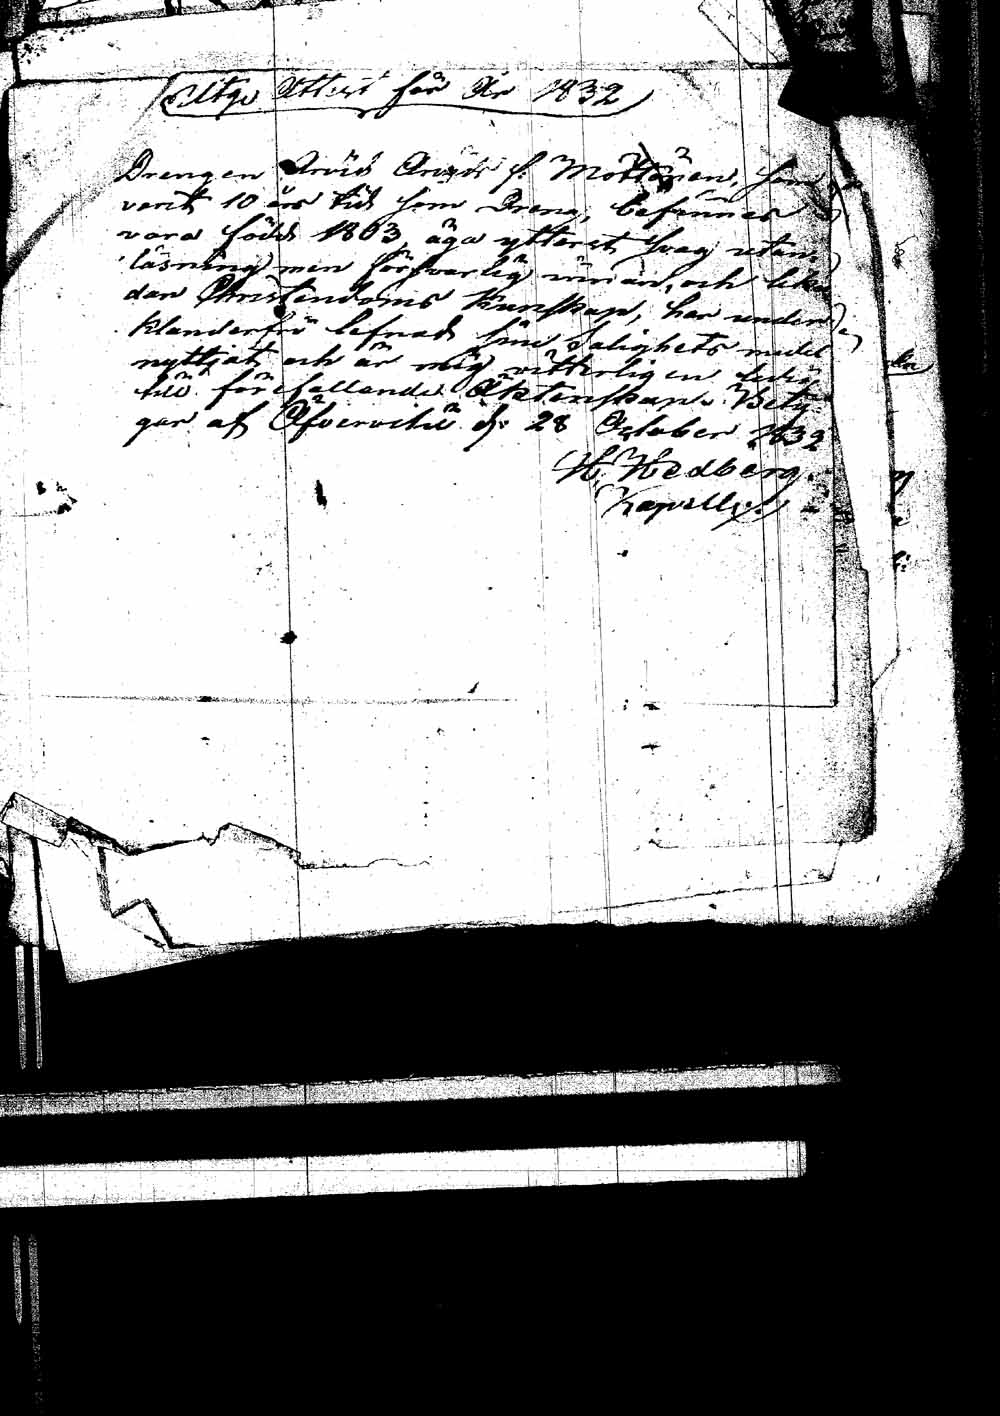 Utgu Attest för År 1832
Drengen Arvid Anders s. Mottönen, som
varit 10 års tid som Dreng, befinnes
vara född 1803, äga ytterst svag utan-
läsning men försvarlig innan, och lika
dan Christendoms Kunskap, har under
klanderfri lefnad sine Salighets medel
nyttjat och är mig vitterligen ledig
till förefallande Äktenskap. Bety-
gar af Öfvervetil d: 28 October 1832
H. Hedberg.
Kapellx.